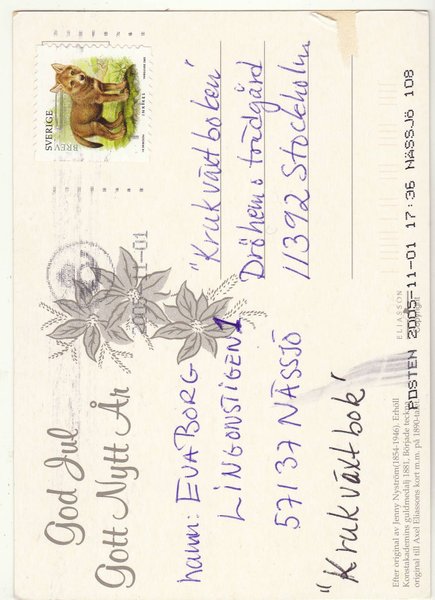 God Jul
Gott Nytt År
SVERIGE
BREV
INRIKES
2005-11-01
"Krukväxtboken"
Dröhems trädgård
11392 Stockholm
namn: EVA BORG
LINGONSTIGEN 1
57137 NÄSSJÖ
"Krukväxtbok"
ELIASSON
Copyright
POSTEN 2005-11-01 17:36 NÄSSJÖ 108
Efter original av Jenny Nyström(1854-1946). Erhöll
Konstakademins guldmedalj 1881. Började teckna
original till Axel Eliassons kort m.m. på 1890-talet